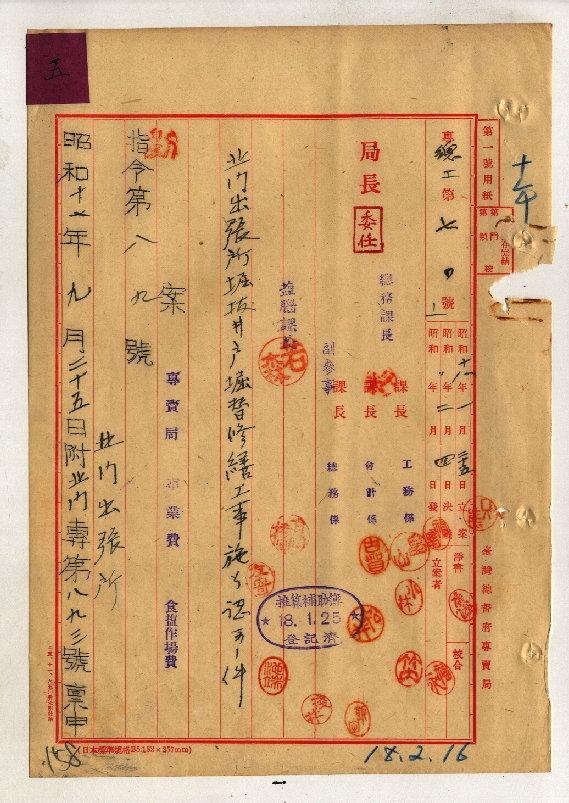 五
十年
第一號用紙
臺灣總督府專賣局
專總工第七〇號
昭和十八年一月二五日立案
昭和 年二月四日決
昭和 年 月 日發
淨書
校合
立案者
局長
委任
總務課長
鹽腦課長
副參事
課長
課長
課長
工務係
會計係
總務係
推算補助簿
18.1.25
登記濟
北門出張所堀拔井戶堀替修繕工事施行認可ノ件
專賣局 事業費 食鹽作場費
案
指令第八九號
北門出張所
昭和十七年九月二十五日附北門專第八九三號稟申
158
(日本標準規格B5 182×257mm)
18.2.16